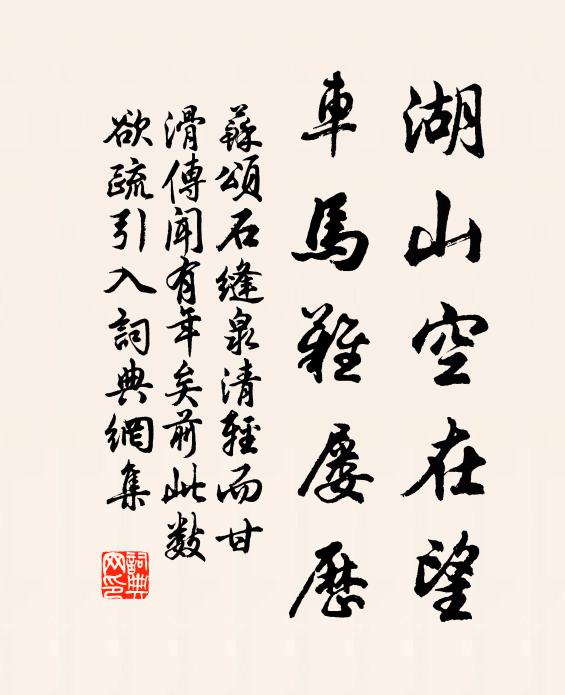 湖山空在望
車馬難屡歴
蘇頌石縫泉清輕而甘
滑傳聞有年矣前此数
欲疏引入詞典網集
詞典网印